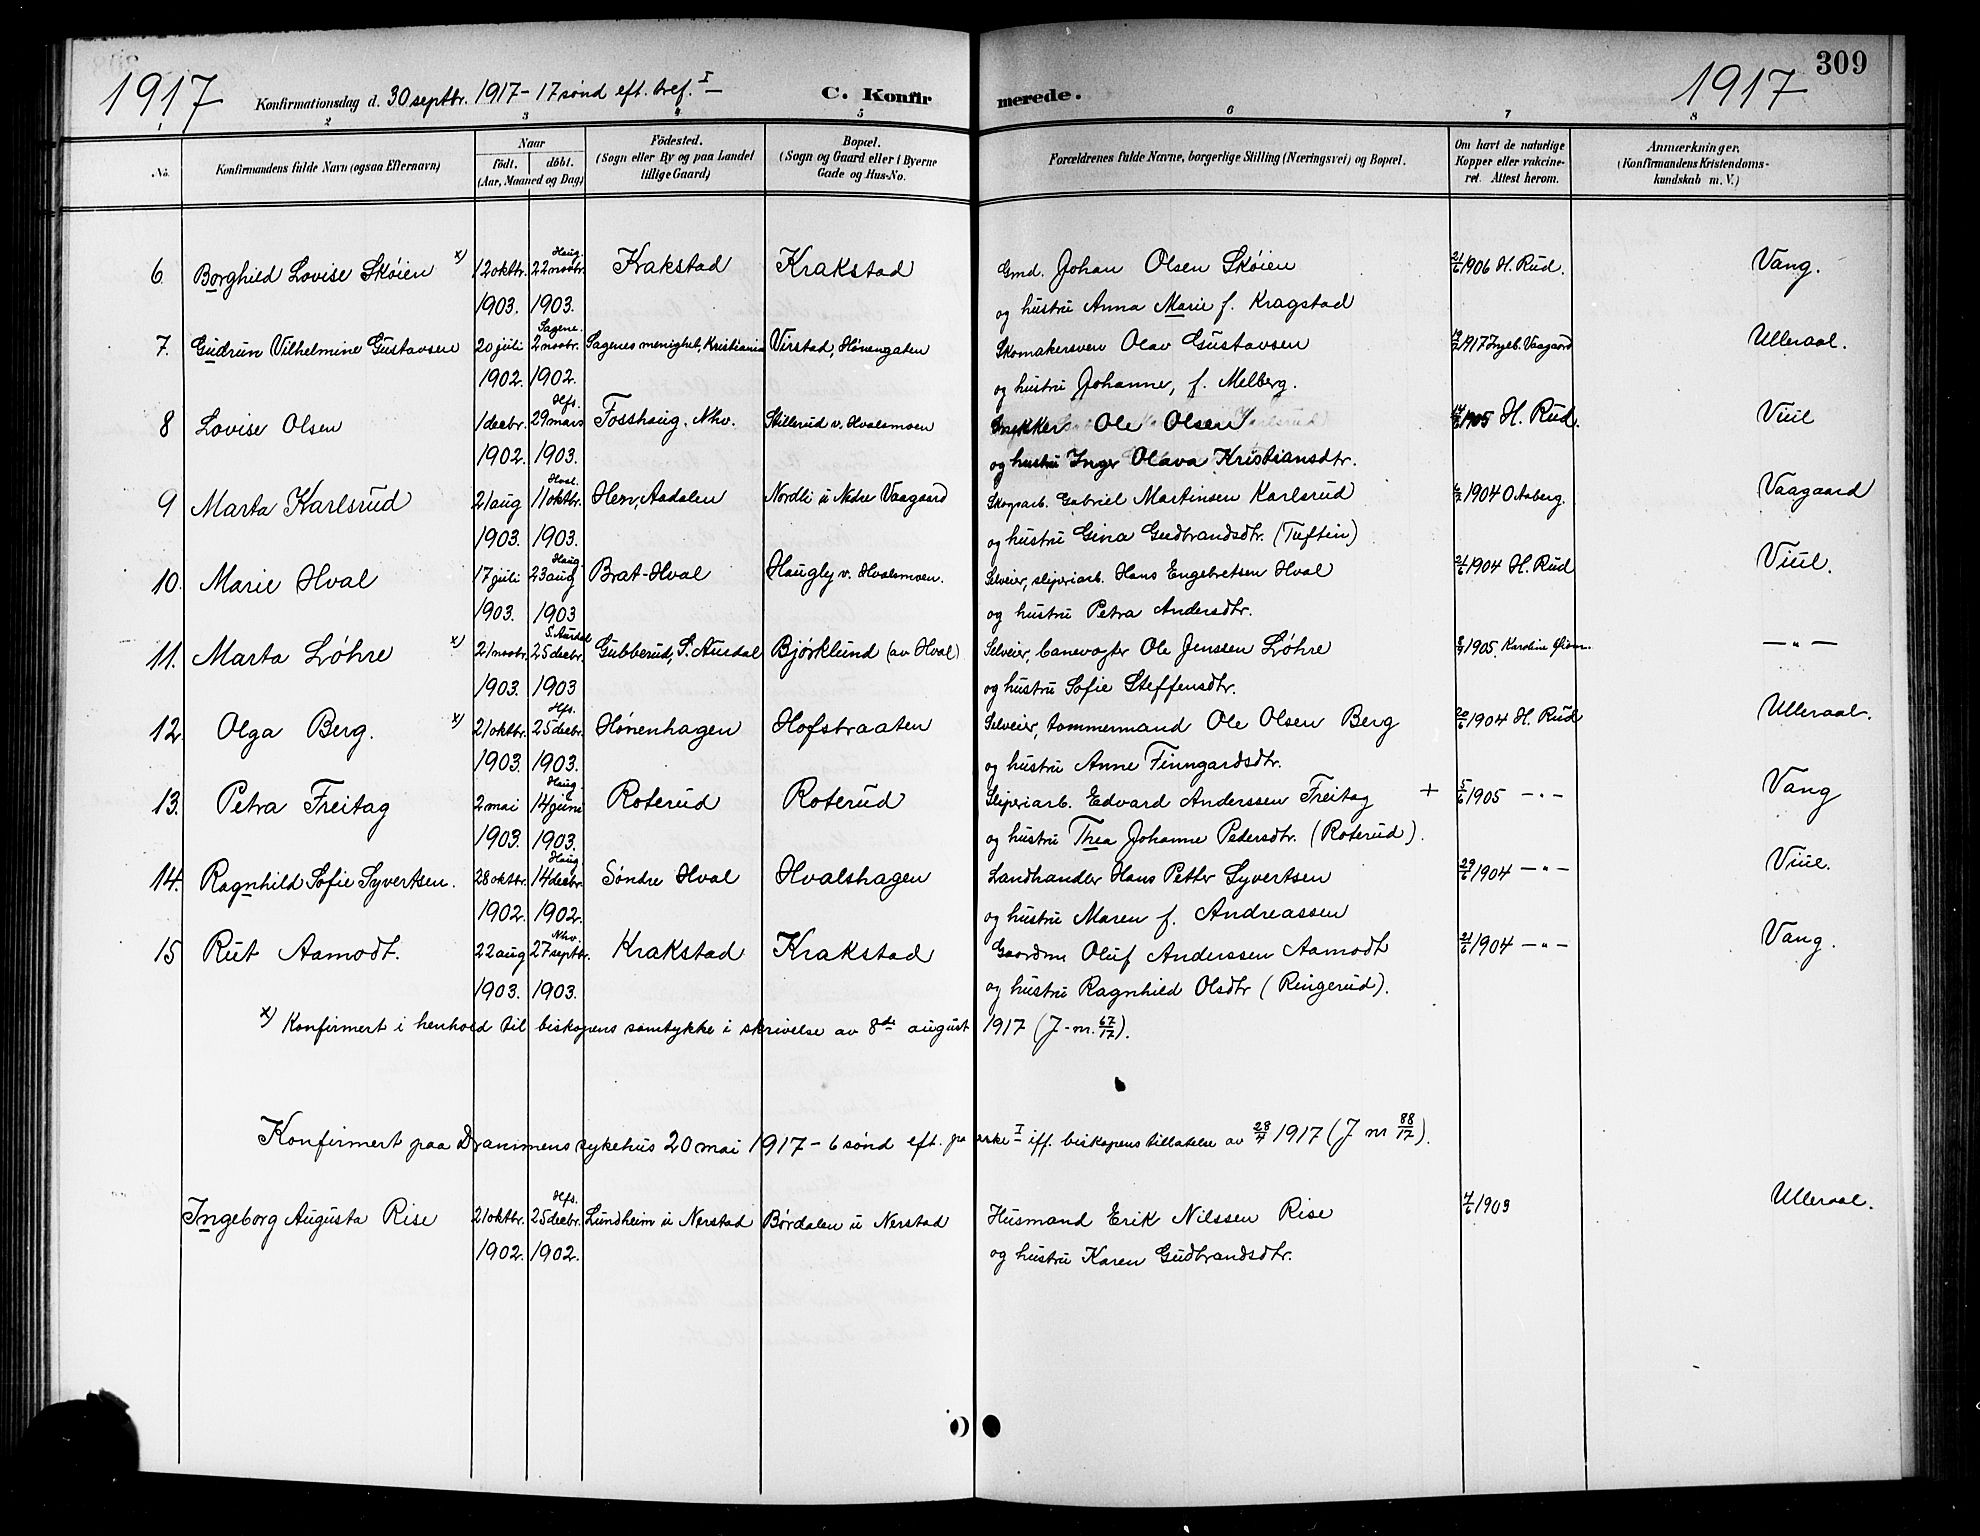 309
1917 Konfirmationsdag d. 30 septbr. 1917 - 17 sønd eft. tref. I - C. Konfirmerede. 1917
1 2 3 4 5 6 7 8
No. Konfirmandens fulde Navn (ogsaa Efternavn) Naar födt. döbt. (Aar, Maaned og Dag) Födested. (Sogn eller By og paa Landet tillige Gaard) Bopæl. (Sogn og Gaard eller i Byerne Gade og Hus-No. Forældrenes fulde Navne, borgerlige Stilling (Næringsvei) og Bopæl. Om havt de naturlige Kopper eller vakcineret. Attest herom. Anmærkninger. (Konfirmandens Kristendomskundskab m. V.)
Haug.
6. Borghild Lovise Skøien x) 12 oktbr. 22 novbr. Krakstad Krakstad Gmd. Johan Olsen Skøien 21/6 1906 H. Rud. Vang.
1903. 1903. og hustru Anna Marie f. Kragstad
Sagene.
7. Gudrun Vilhelmine Gustavsen 20 juli 2 novbr. Sagenes menighet, Kristiania Virstad, Hønengaten Skomakersven Olav Gustavsen 1917 Ingeb. Vaagaard Ulleraal.
1902. 1902. og hustru Johanne, f. Melberg.
Hfs.
8 Lovise Olsen 1 decbr. 29 mars Fosshaug, Nhv. Stillerud v. Hvalsmoen Snekker Ole Olsen 1905 H. Rud. Viul
1902. 1903. og hustru Inger Olava Kristiansdtr.
Hval.
9 Marta Karlsrud 21 aug 11 oktbr. Hen, Aadalen Nordli u Nedre Vaagaard Skogsarb. Gabriel Martinsen Karlsrud 1904 O Aaberg. Vaagaard
1903. 1903. og hustru Gina Gudbrandsdtr. (Tuftin)
Haug.
10. Marie Hval 17 juli 23 aug Brat-Hval Haugly v. Hvalsmoen. Selveier, sliperiarb. Hans Engebretsen Hval 21/6 1904 H. Rud Viul.
1903. 1903 og hustru Petra Andersdtr.
S. Aurdal
11. Marta Løhre x) 21 novbr. 25 decbr. Gubberud, S. Aurdal Bjørklund (av Hval) Selveier, banevogter Ole Jenssen Løhre 1905. Karoline — " —
1903. 1903 og hustru Sofie Steffensdtr.
Hfs.
12. Olga Berg. x) 21 oktbr. 25 decbr. Hønenhagen Hofstraaten Selveier, tømmermand Ole Olsen Berg 20/6 1904 H. Rud Ulleraal.
1903. 1903. og hustru Anne Finngardsdtr.
Haug.
13. Petra Freitag 2 mai 14 juni Roterud Roterud Sliperiarb. Edvard Anderssen Freitag + 5/6 1905 — " — Vang
1903. 1903. og hustru Thea Johanne Pedersdtr. (Roterud).
Haug
14. Ragnhild Sofie Syvertsen. 28 oktbr. 14 decbr. Søndre Hval Hvalshagen Landhandler Hans Petter Syvertsen 29/6 1904 — " — Viul.
1902. 1902. og hustru Maren f. Andreassen
Nhv.
15 Rut Aamodt. 22 aug 27 septbr. Krakstad Krakstad Gaardm Oluf Anderssen Aamodt 21/6 1904 — " — Vang.
1903. 1903. og hustru Ragnhild Olsdtr (Ringerud).
x) Konfirmert i henhold til biskopens samtykke i skrivelse av 8de august 1917 (J-nr. 67/17).
Konfirmert paa Drammens sykehus 20 mai 1917 - 6 sønd eft. paaske I iff. biskopens tillatelse av 28/4 1917 (J nr 88/17).
Hfs.
Ingeborg Augusta Rise 21 oktbr. 25 decbr. Lundheim u Nerstad Børdalen u Nerstad Husmand Erik Nilssen Rise 4/6 1903 Ulleraal.
1902. 1902. og hustru Karen Gudbrandsdtr.